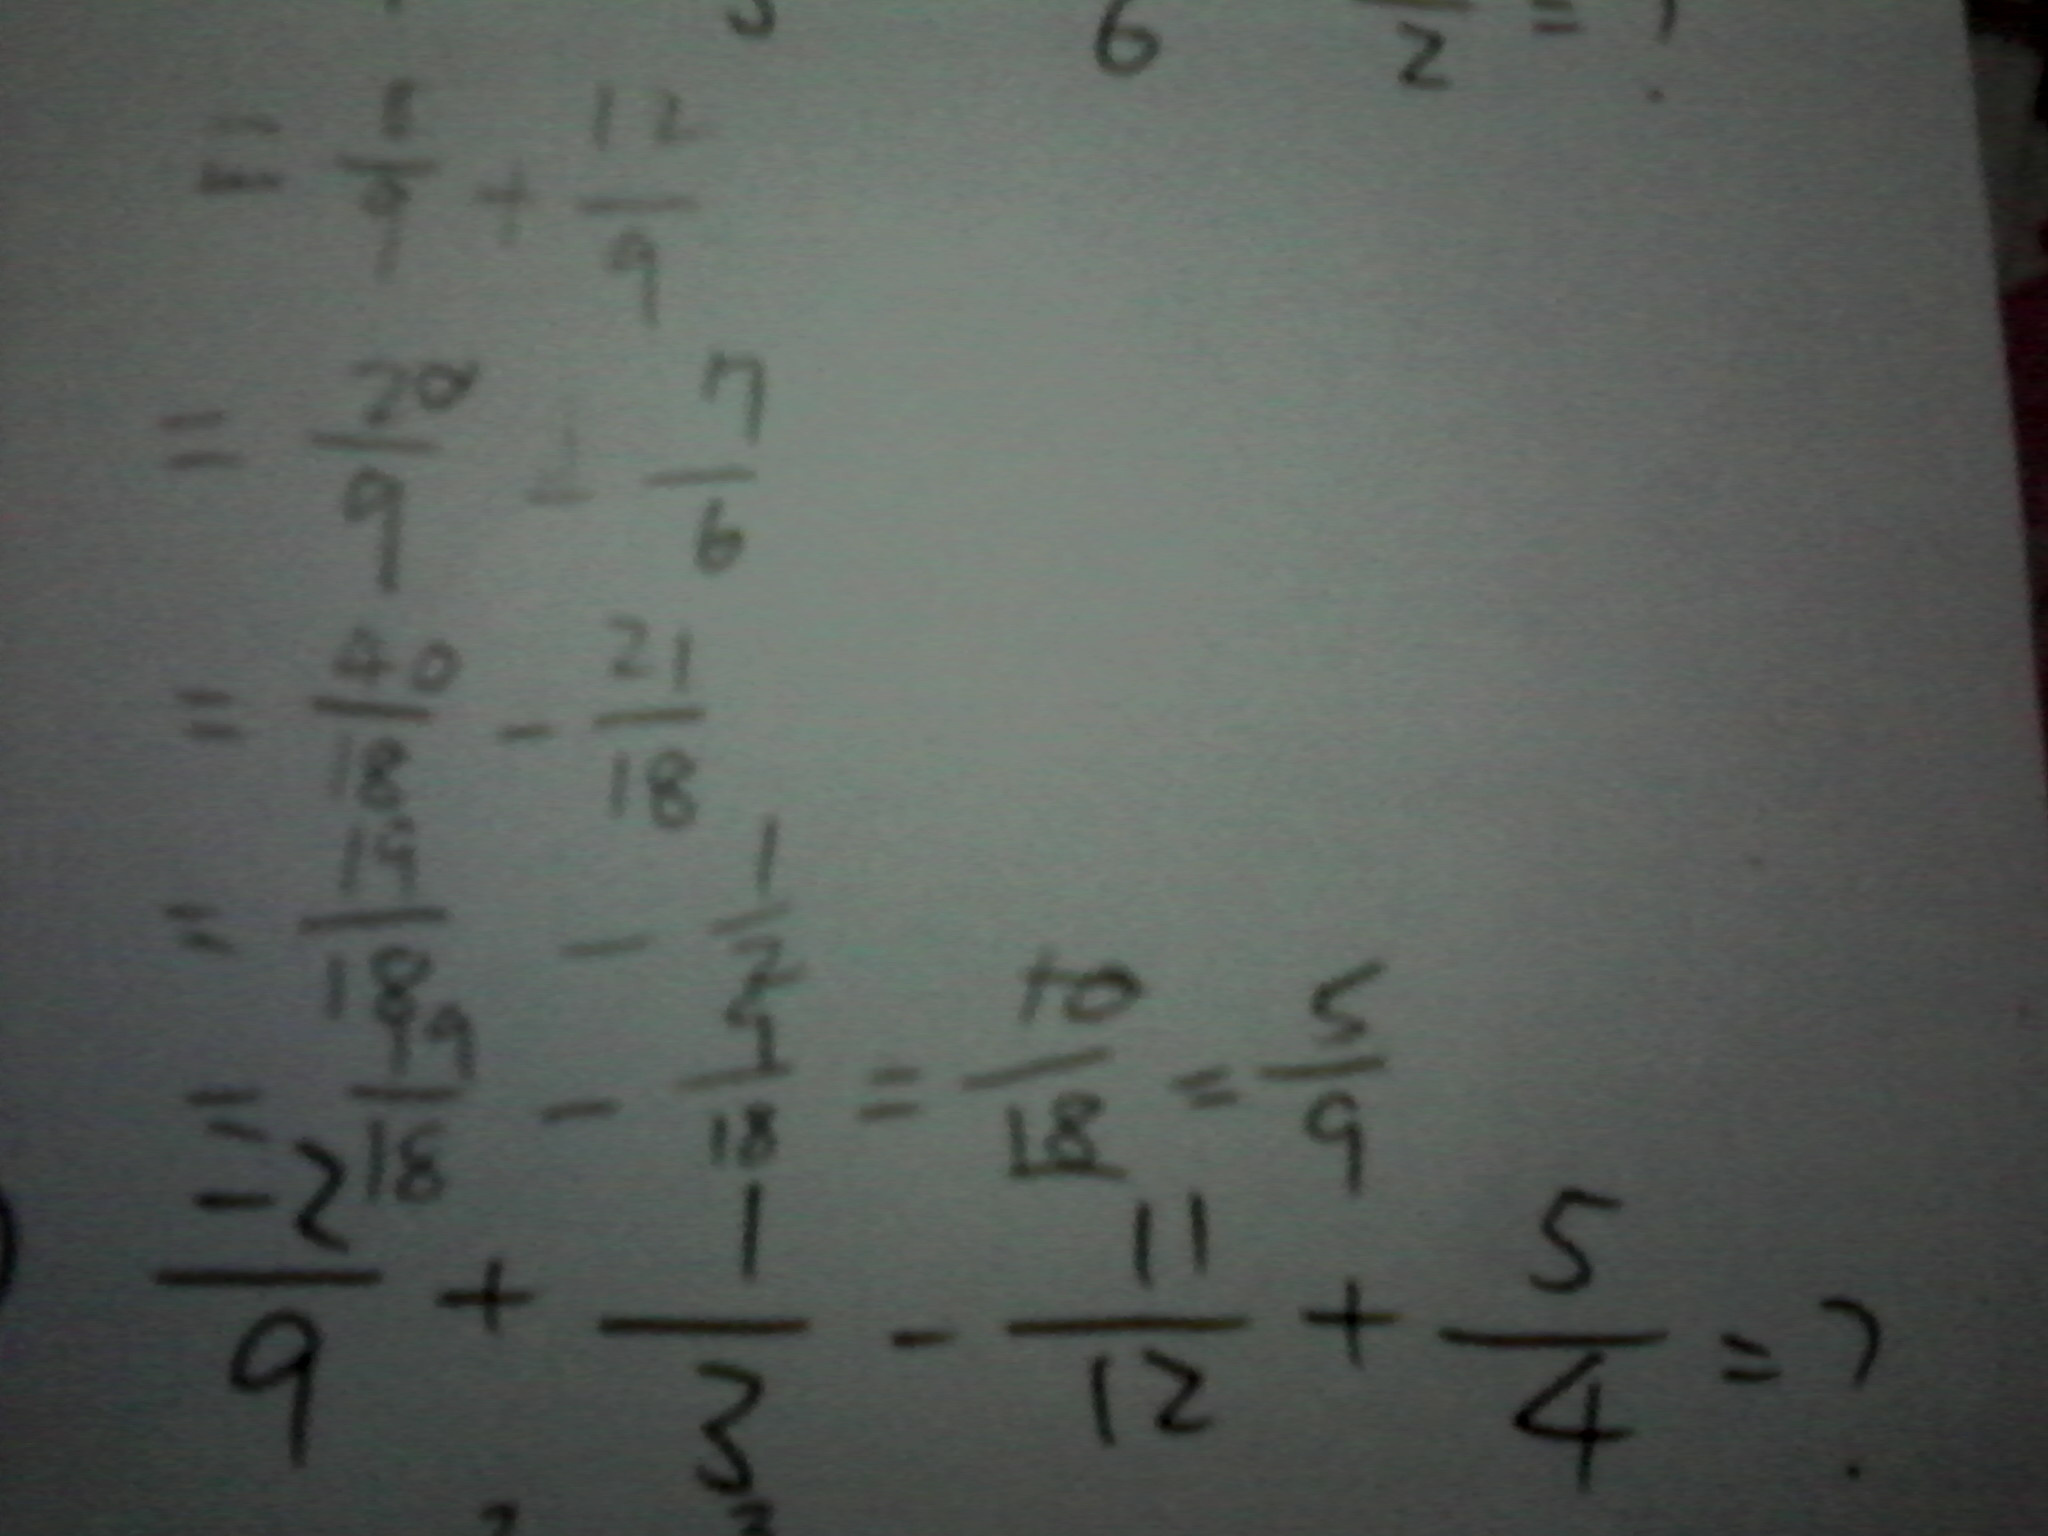 6 2 = ?
= 8/9 + 12/9
= 20/9 - 7/6
= 40/18 - 21/18
= 19/18 - 1/2
= 19/18 - 9/18 = 10/18 = 5/9
-2/9 + 1/3 - 11/12 + 5/4 = ?